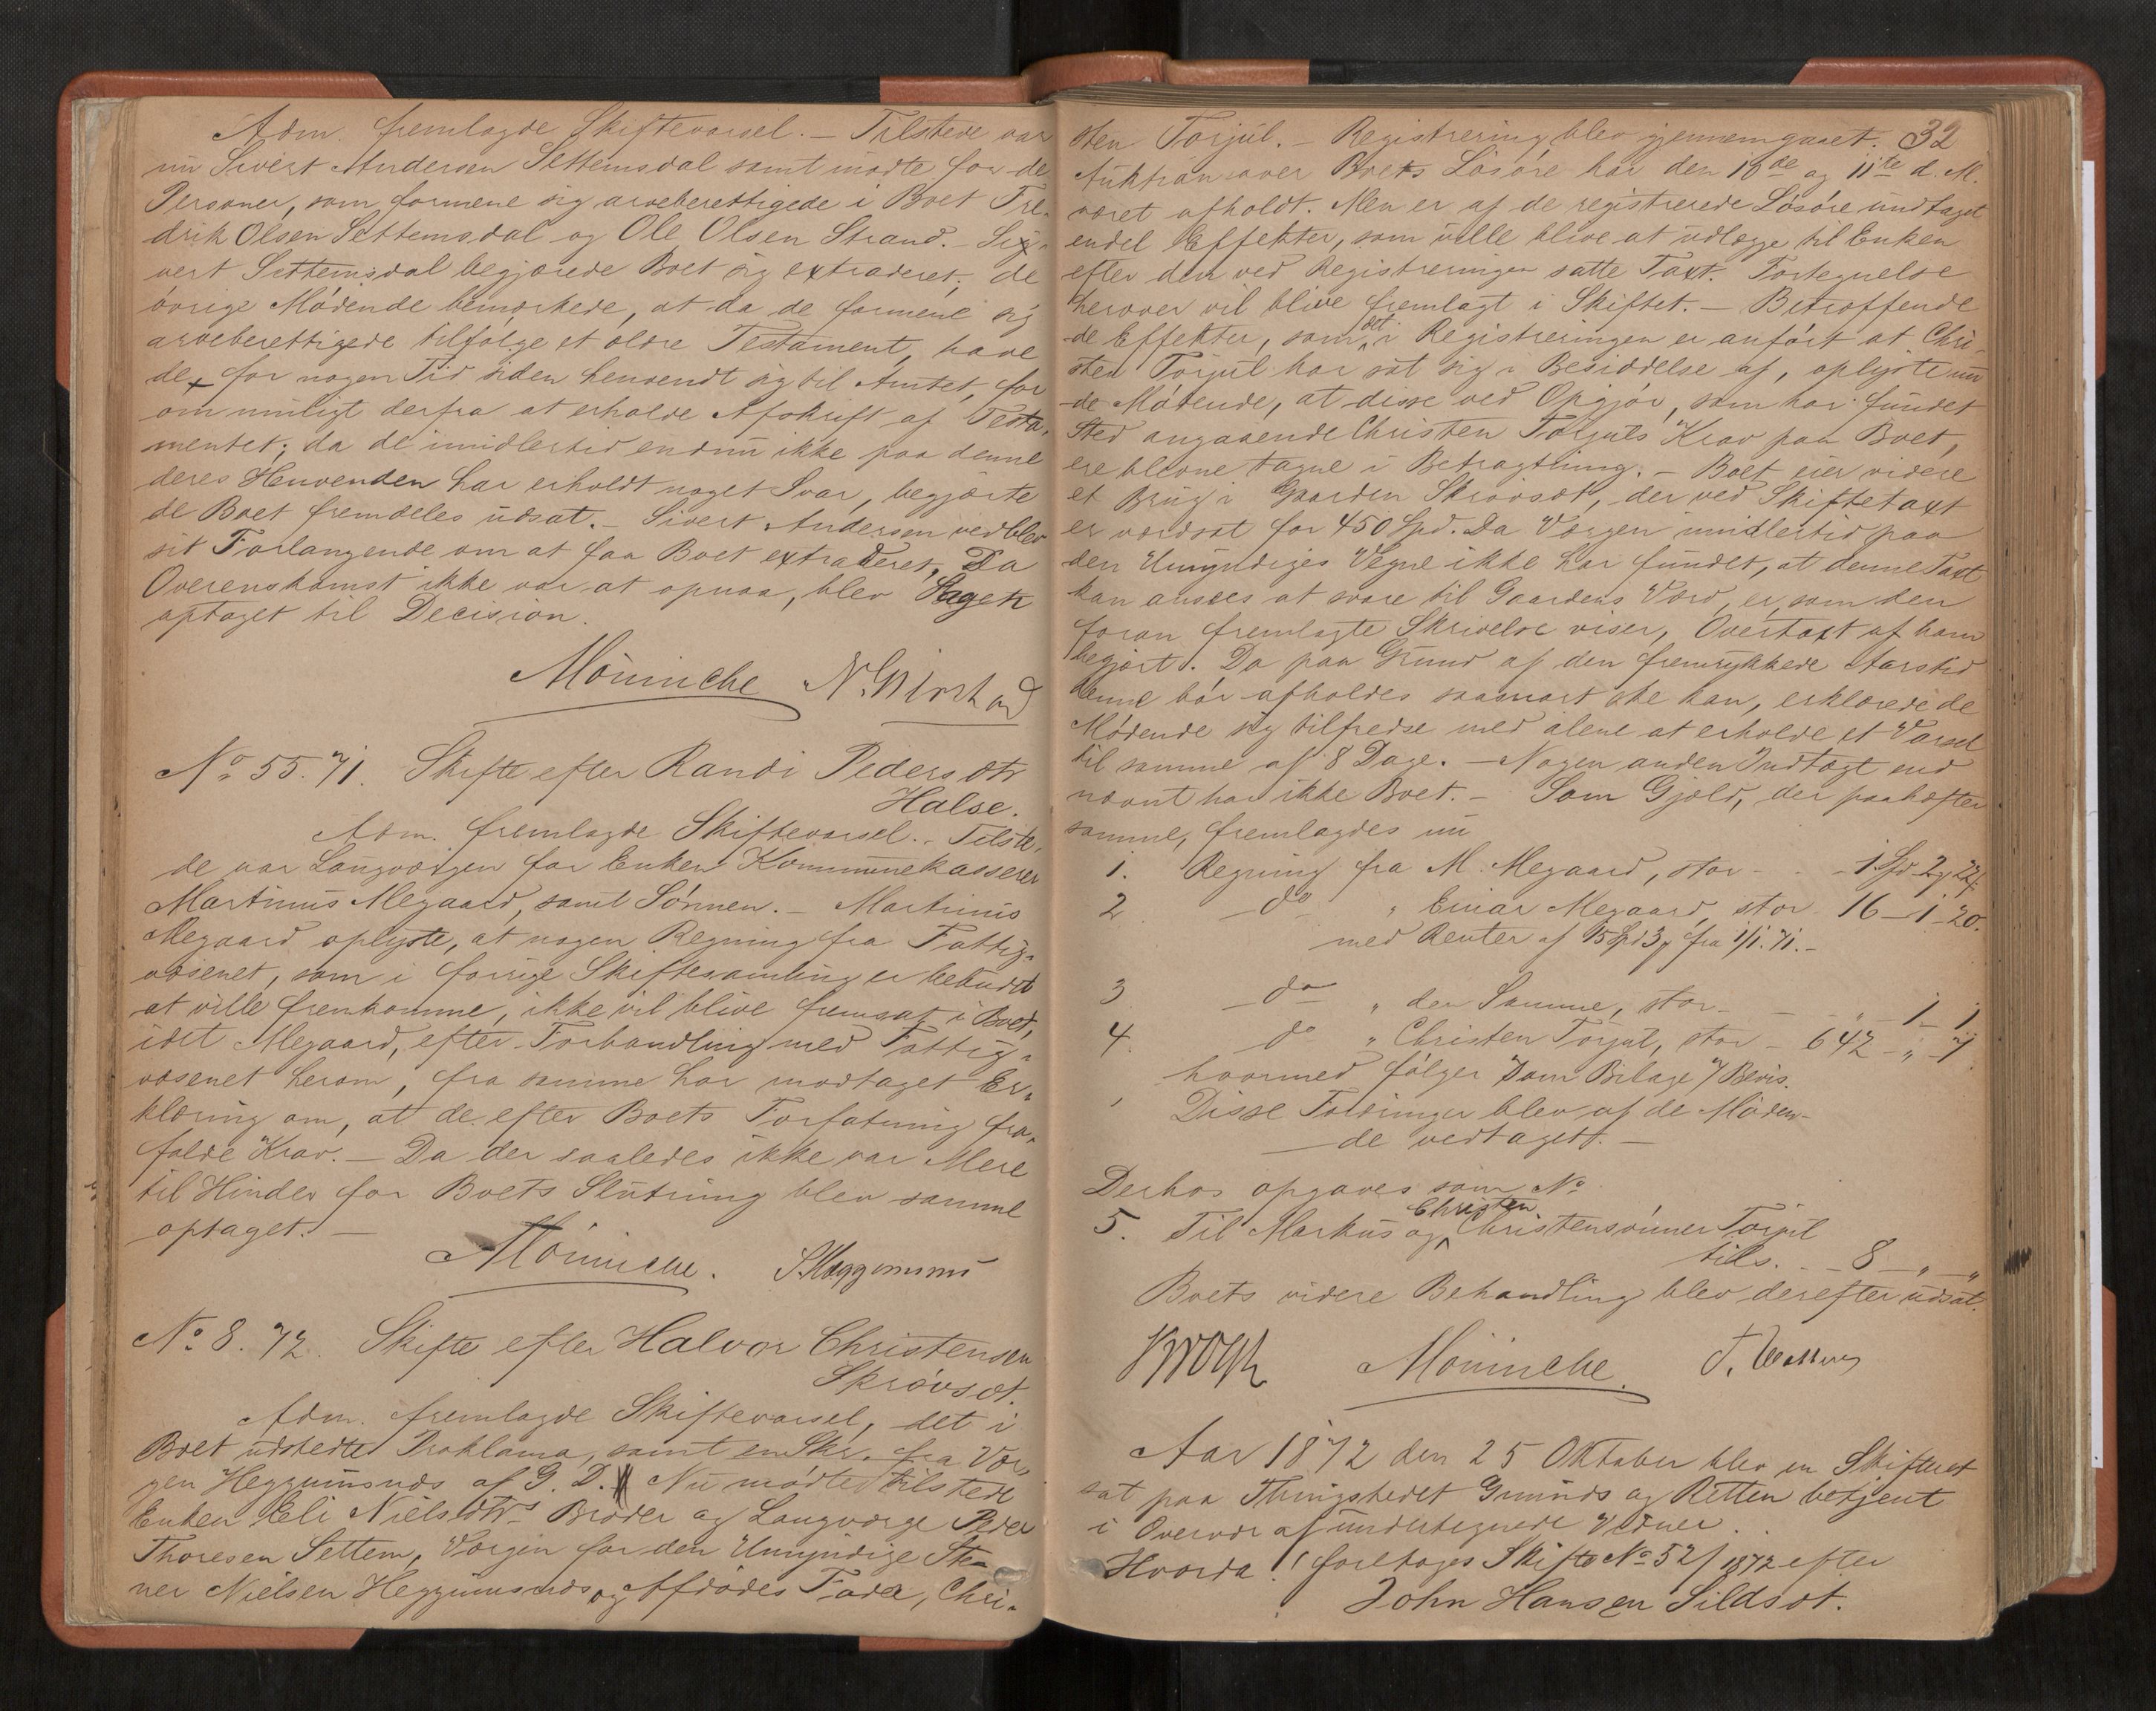 Adm. fremlagde Skiftevarsel. – Tilstede var
nu Sivert Andersen Settemsdal samt mødte for de
Personer, som formene sig arveberettigede i Boet Fre-
drik Olsen Settemsdal og Ole Olsen Strand. – Si-
vert Settemsdal begjærede Boet sig extraderet; de
øvrige Mødende bemærkede, at da de formene sig
arveberettigede tilfølge et ældre Testament, have
de for nogen Tid siden henvendt sig til Amtet, for
om muligt derfra at erholde Afskrift af Testa-
mentet; da de imidlertid endnu ikke paa denne
deres Henvenden har erholdt noget Svar, begjærte
de Boet fremdeles udsat. – Sivert Andersen vedblev
sit Forlangende om at faa Boet extraderet. Da
Overenskomst ikke var at opnaa, blev Sagen
optaget til Decision.
Mönniche N.
No 55. 71. Skifte efter Randi Pedersdtr
Halse.
Adm. fremlagde Skiftevarsel. – Tilste-
de var Laugværgen for Enken Kommunekasserer
Martinus Megaard, samt Sønnen. – Martinus
Megaard oplyste, at nogen Regning fra Fattig-
væsenet, som i forrige Skiftesamling er bebudet
at ville fremkomme, ikke vil blive fremsat i Boet,
idet Megaard, efter Forhandling med Fattig-
væsenet herom, fra samme har modtaget Er-
klæring om, at de efter Boets Forfatning fra-
falde Krav. – Da der saaledes ikke var Mere
til Hinder for Boets Slutning blev samme
optaget. –
Mönniche. S. Heggemsnes
No 8. 72. Skifte efter Halvor Christensen
Skrøvsæt.
Adm. fremlagde Skiftevarsel, det i
Boet udstedte Proklama, samt en Skr. fra Vær-
gen Heggumsnds af G. D. Nu mødte tilstede
Enken Eli Nielsdtrs Broder og Laugværge Peder
Thoresen Settem, Værgen for den Umyndige Ste-
ner Nielsen Heggumsnds og Afdødes Fader, Chri-
32
sten Torjul. – Registrering blev gjennemgaaet.
Auktion over Boets Løsøre har den 10de og 11te d. M.
været afholdt. Men er af de registrerede Løsøre undtaget
endel Effekter, som ville blive at udlægge til Enken
efter den ved Registreringen satte Taxt. Fortegnelse
herover vil blive fremlagt i Skiftet. – Betræffende
de Effekter, som det i Registreringen er anført at Chri-
sten Torjul har sat sig i Besiddelse af, oplyste nu
de Mødende, at disse ved Opgjør, som har fundet
Sted angaaende Christen Torjuls Krav paa Boet,
ere blevne tagne i Betragtning. – Boet eier videre
et Brug i Gaarden Skrøvsæt, der ved Skiftetaxt
er værdsat for 450 Spd. Da Værgen imidlertid paa
den Umyndiges Vegne ikke har fundet, at denne Taxt
kan ansees at svare til Gaardens Værd, er, som den
foran fremlagte Skrivelse viser, Overtaxt af ham
begjært. Da paa Grund af den fremrykkede Aarstid
denne bør afholdes saasnart ske kan, erklærede de
Mødende sig tilfredse med alene at erholde et Varsel
til samme af 8 Dage. – Nogen anden Indtægt end
nævnt har ikke Boet. – Som Gjæld, der paahæfter
samme, fremlagdes nu
1. Regning fra M. Megaard, stor - - - 1 Spd 2 22
2 – do „ Einar Megaard, stor 16 – 1 – 20.
med Renter af 15 Spd 3 fra 1/1. 71. –
3 – do „ den Samme, stor – – „ – 1 – 1
4. do „ Christen Torjul, stor – 642 – „ – 7
hvormed følger som Bilage 7 Bevis.
Disse Fordringer blev af de Møden-
de vedtaget. –
Derhos opgaves som No
5. Til Markus og Christen Christensønner Torjul
tils. - - 8 – „ – „
Boets videre Behandling blev derefter udsat.
Krogh Mönniche.
Aar 1872 den 25 Oktober blev en Skifteret
sat paa Thingstedet Grunds og Retten betjent
i Overvær af undertegnede Vidner.
Hvorda! foretages Skifte No 52/1872 efter
John Hansen Sildsæt.